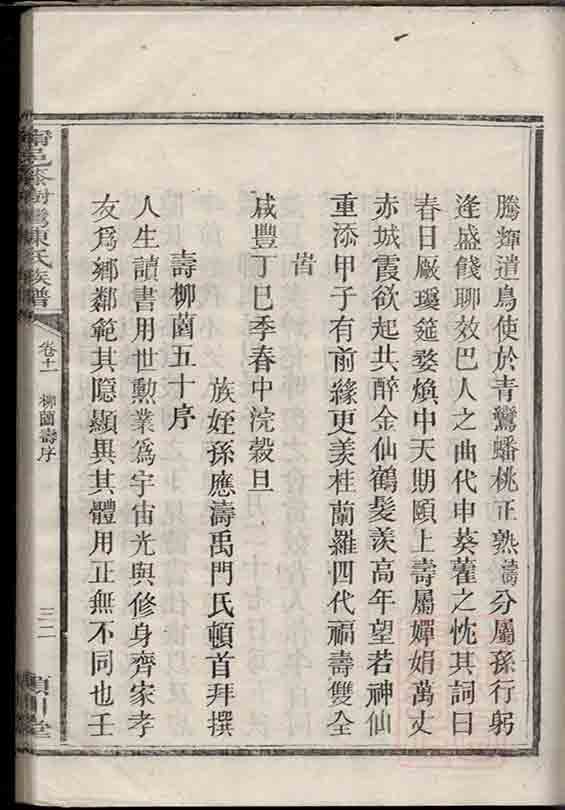 騰輝遣鳥使於青鸞蟠桃正熟濤分屬孫行躬
逢盛餞聊效巴人之曲代申葵藿之忱其詞曰
春日厰瓊筵婺煥中天期頤上壽屬嬋娟萬丈
赤城霞欲起共醉金仙鶴髮羨高年望若神仙
重添甲子有前緣更美桂蘭羅四代福壽雙全
旹
咸豐丁巳季春中浣穀旦
族姪孫應濤禹門氏頓首拜撰
壽柳菌五十序
人生讀書用世勲業爲宇宙光與修身齊家孝
友爲鄉鄰範其隱顯異其體用正無不同也壬
甯邑
陳氏族譜
卷十一
柳菌壽序
三二
潁川堂